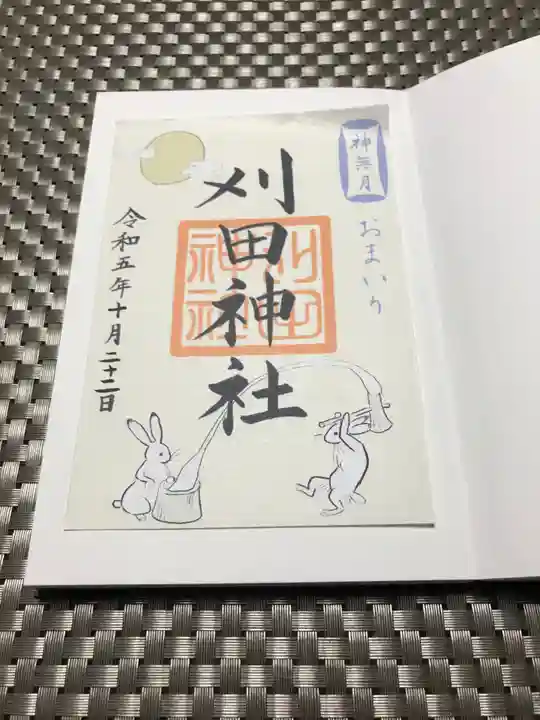 神無月
おまいり
刈田神社
刈田
神社
令和五年十月二十二日